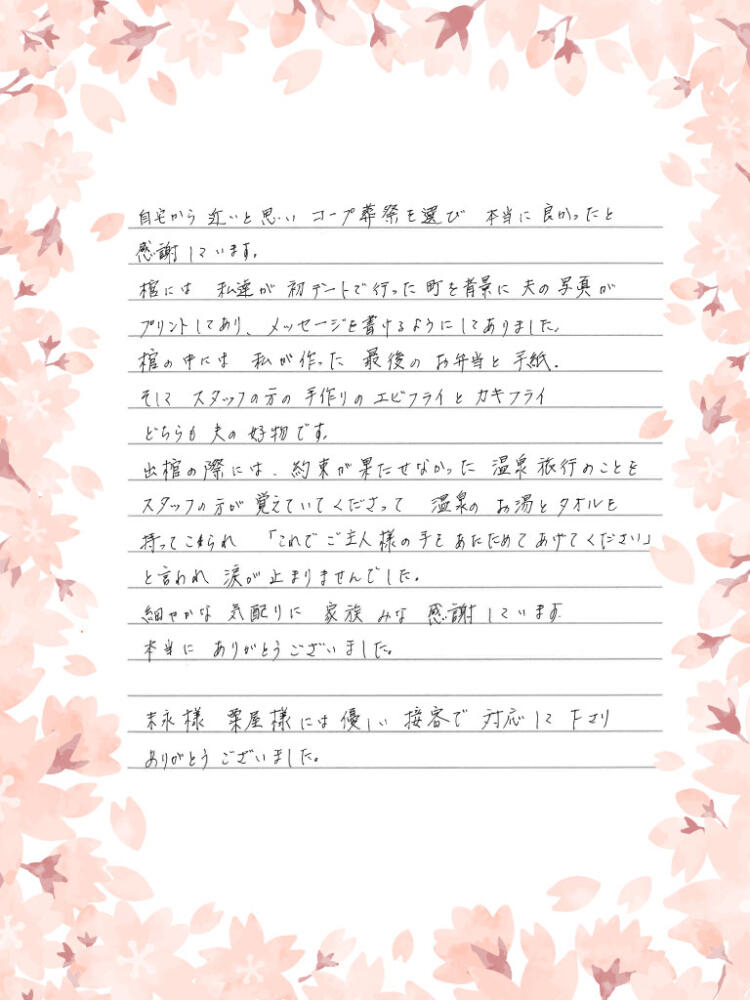 自宅から 近いと思い コープ葬祭を選び 本当に良かったと
感謝しています。
棺には 私達が 初デートで行った町を背景に 夫の写真が
プリントしてあり、メッセージを書けるようにしてありました。
棺の中には 私が作った 最後の お弁当と手紙.
そして スタッフの方の 手作りの エビフライと カキフライ
どちらも 夫の 好物です。
出棺の際には、約束が果たせなかった 温泉旅行のことを
スタッフの方が 覚えていてくださって 温泉の お湯とタオルを
持ってこられ 「これで ご主人様の手を あたためて あげてください」
と言われ 涙が止まりませんでした。
細やかな 気配りに 家族 みな 感謝しています
本当に ありがとうございました。
末永様 粟屋様には優しい 接客で 対応して 下さり
ありがとうございました。